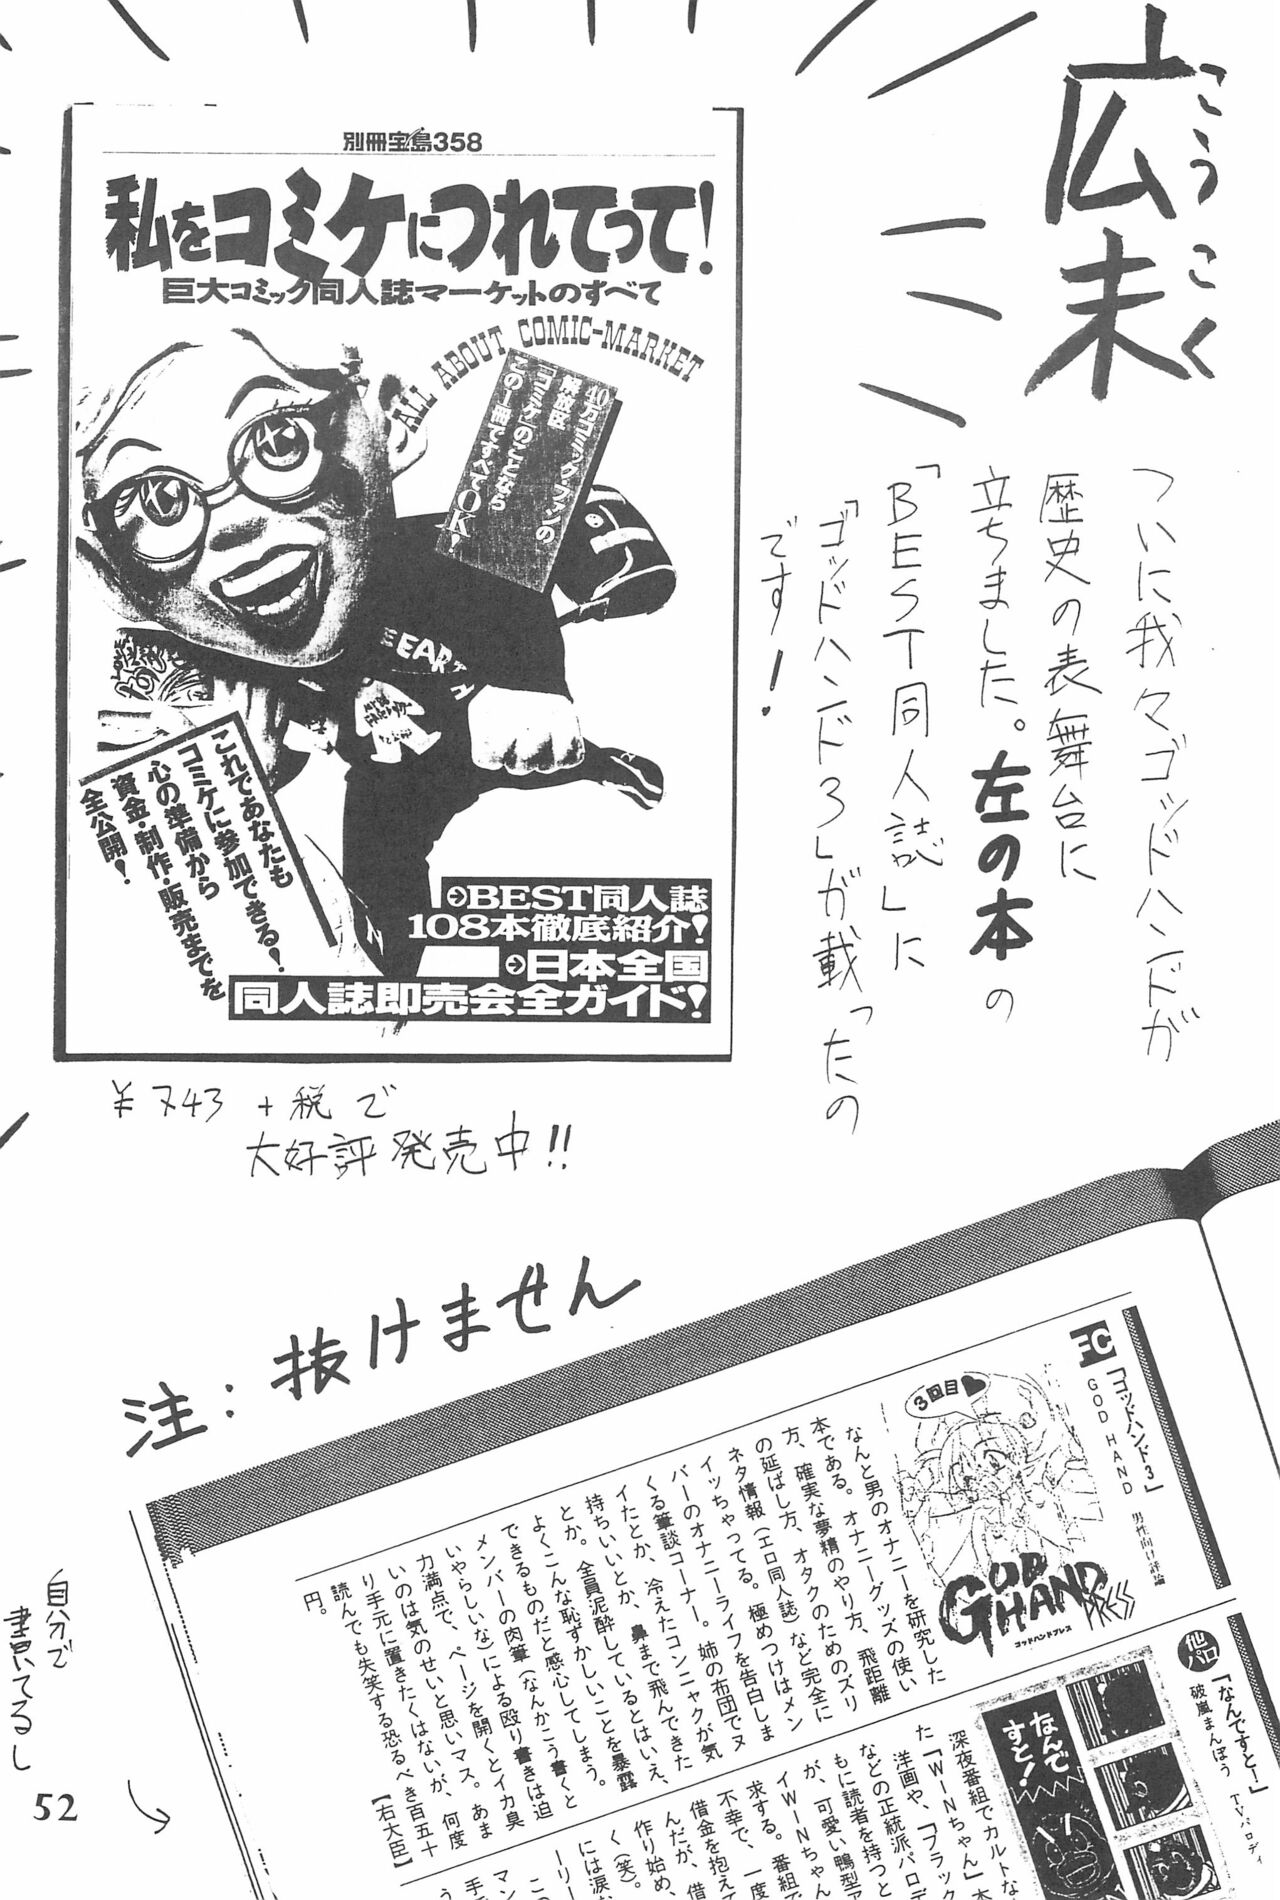 広末
こうこく
ついに我々ゴッドハンドが
歴史の表舞台に
立ちました。左の本の
「BEST同人誌」に
「ゴッドハンド3」が載ったの
です!
別冊宝島358
私をコミケにつれてって!
巨大コミック同人誌マーケットのすべて
ALL ABOUT COMIC-MARKET
40万コミックファンの
解放区
「コミケ」のことなら
この1冊ですべてOK!
EARTH
これであなたも
コミケに参加できる!
心の準備から
資金・制作・販売までを
全公開!
BEST同人誌
108本徹底紹介!
日本全国
同人誌即売会全ガイド!
¥743+税で
大好評発売中!!
注:抜けません
「ゴッドハンド3」
GOD HAND 男性向け評論
3回目♥
GOD HAND PRESS
ゴッドハンドプレス
なんと男のオナニーを研究した
本である。オナニーグッズの使い
方、確実な夢精のやり方、飛距離
の延ばし方、オタクのためのズリ
ネタ情報(エロ同人誌)など完全に
イッちゃってる。極めつけはメン
バーのオナニーライフを告白しま
くる筆談コーナー。姉の布団でヌ
イたとか、冷えたコンニャクが気
持ちいいとか、鼻まで飛んできた
とか。全員泥酔しているとはいえ、
よくこんな恥ずかしいことを暴露
できるものだと感心してしまう。
メンバーの肉筆(なんかこう書くと
いやらしいな)による殴り書きは迫
力満点で、ページを開くとイカ臭
いのは気のせいと思いマス。あま
り手元に置きたくはないが、何度
読んでも失笑する恐るべき百五十
円。
【右大臣】
他パロ
「なんですとー!」
破嵐まんぼう TVパロディ
なんで
すと!
深夜番組でカルトな
た「WINちゃん」本
洋画や、「ブラック
などの正統派パロデ
もに読者を持つと
が、可愛い鴨型ア
イWINちゃん
求する。番組で
不幸で、一度
借金を抱えて
んだが、借
作り始め、
く(笑)。
には涙な
ーリー
この
マン
手
う
自分で
書いてるし
52